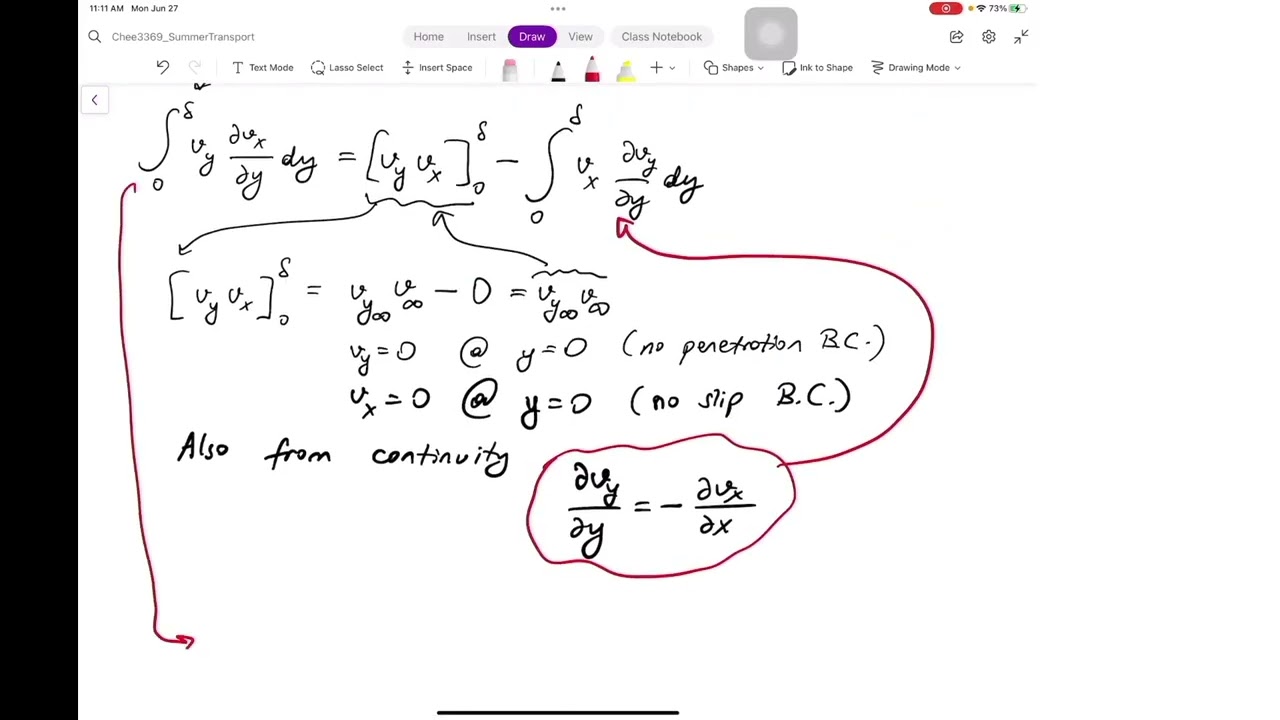 11:11 AM Mon Jun 27 73%
Chee3369_SummerTransport Home Insert Draw View Class Notebook
Text Mode Lasso Select Insert Space Shapes Ink to Shape Drawing Mode
∫₀^δ v_y ∂v_x/∂y dy = [v_y v_x]₀^δ − ∫₀^δ v_x ∂v_y/∂y dy
[v_y v_x]₀^δ = v_y∞ v_∞ − 0 = v_y∞ v_∞
v_y = 0 @ y = 0 (no penetration B.C.)
v_x = 0 @ y = 0 (no slip B.C.)
Also from continuity
∂v_y/∂y = − ∂v_x/∂x